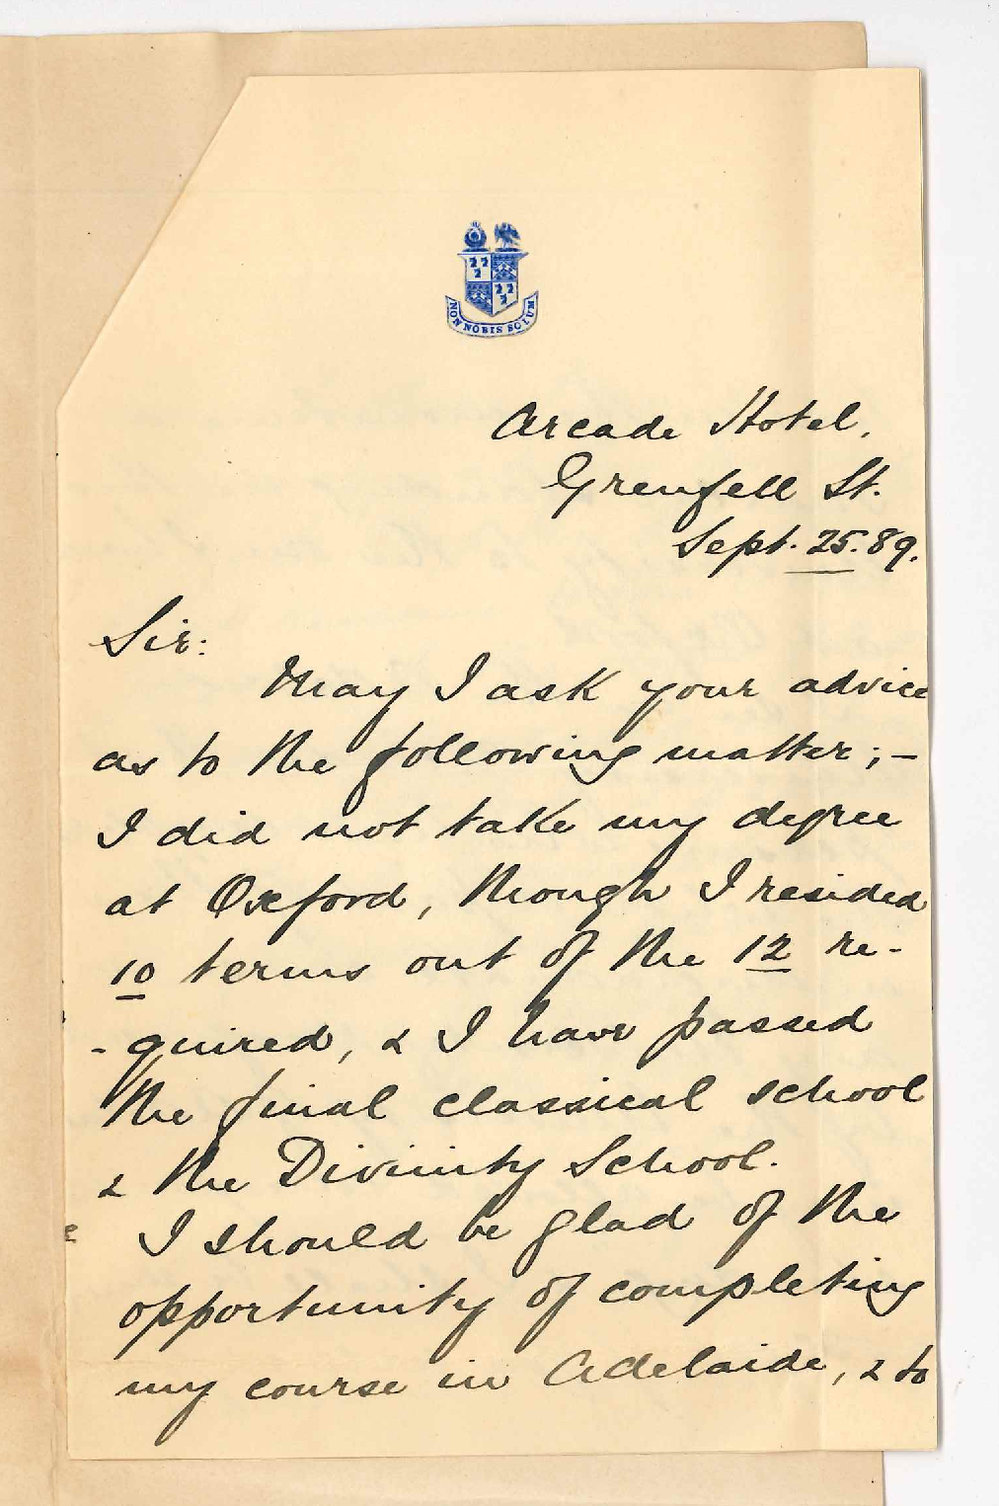 NON NOBIS SOLUM
Arcade Hotel,
Grenfell St.
Sept. 25. 89.
Sir:
May I ask your advice
as to the following matter; –
I did not take my degree
at Oxford, though I resided
10 terms out of the 12 re-
-quired, & I have passed
the final classical school
& the Divinity School.
I should be glad of the
opportunity of completing
my course in Adelaide, & to